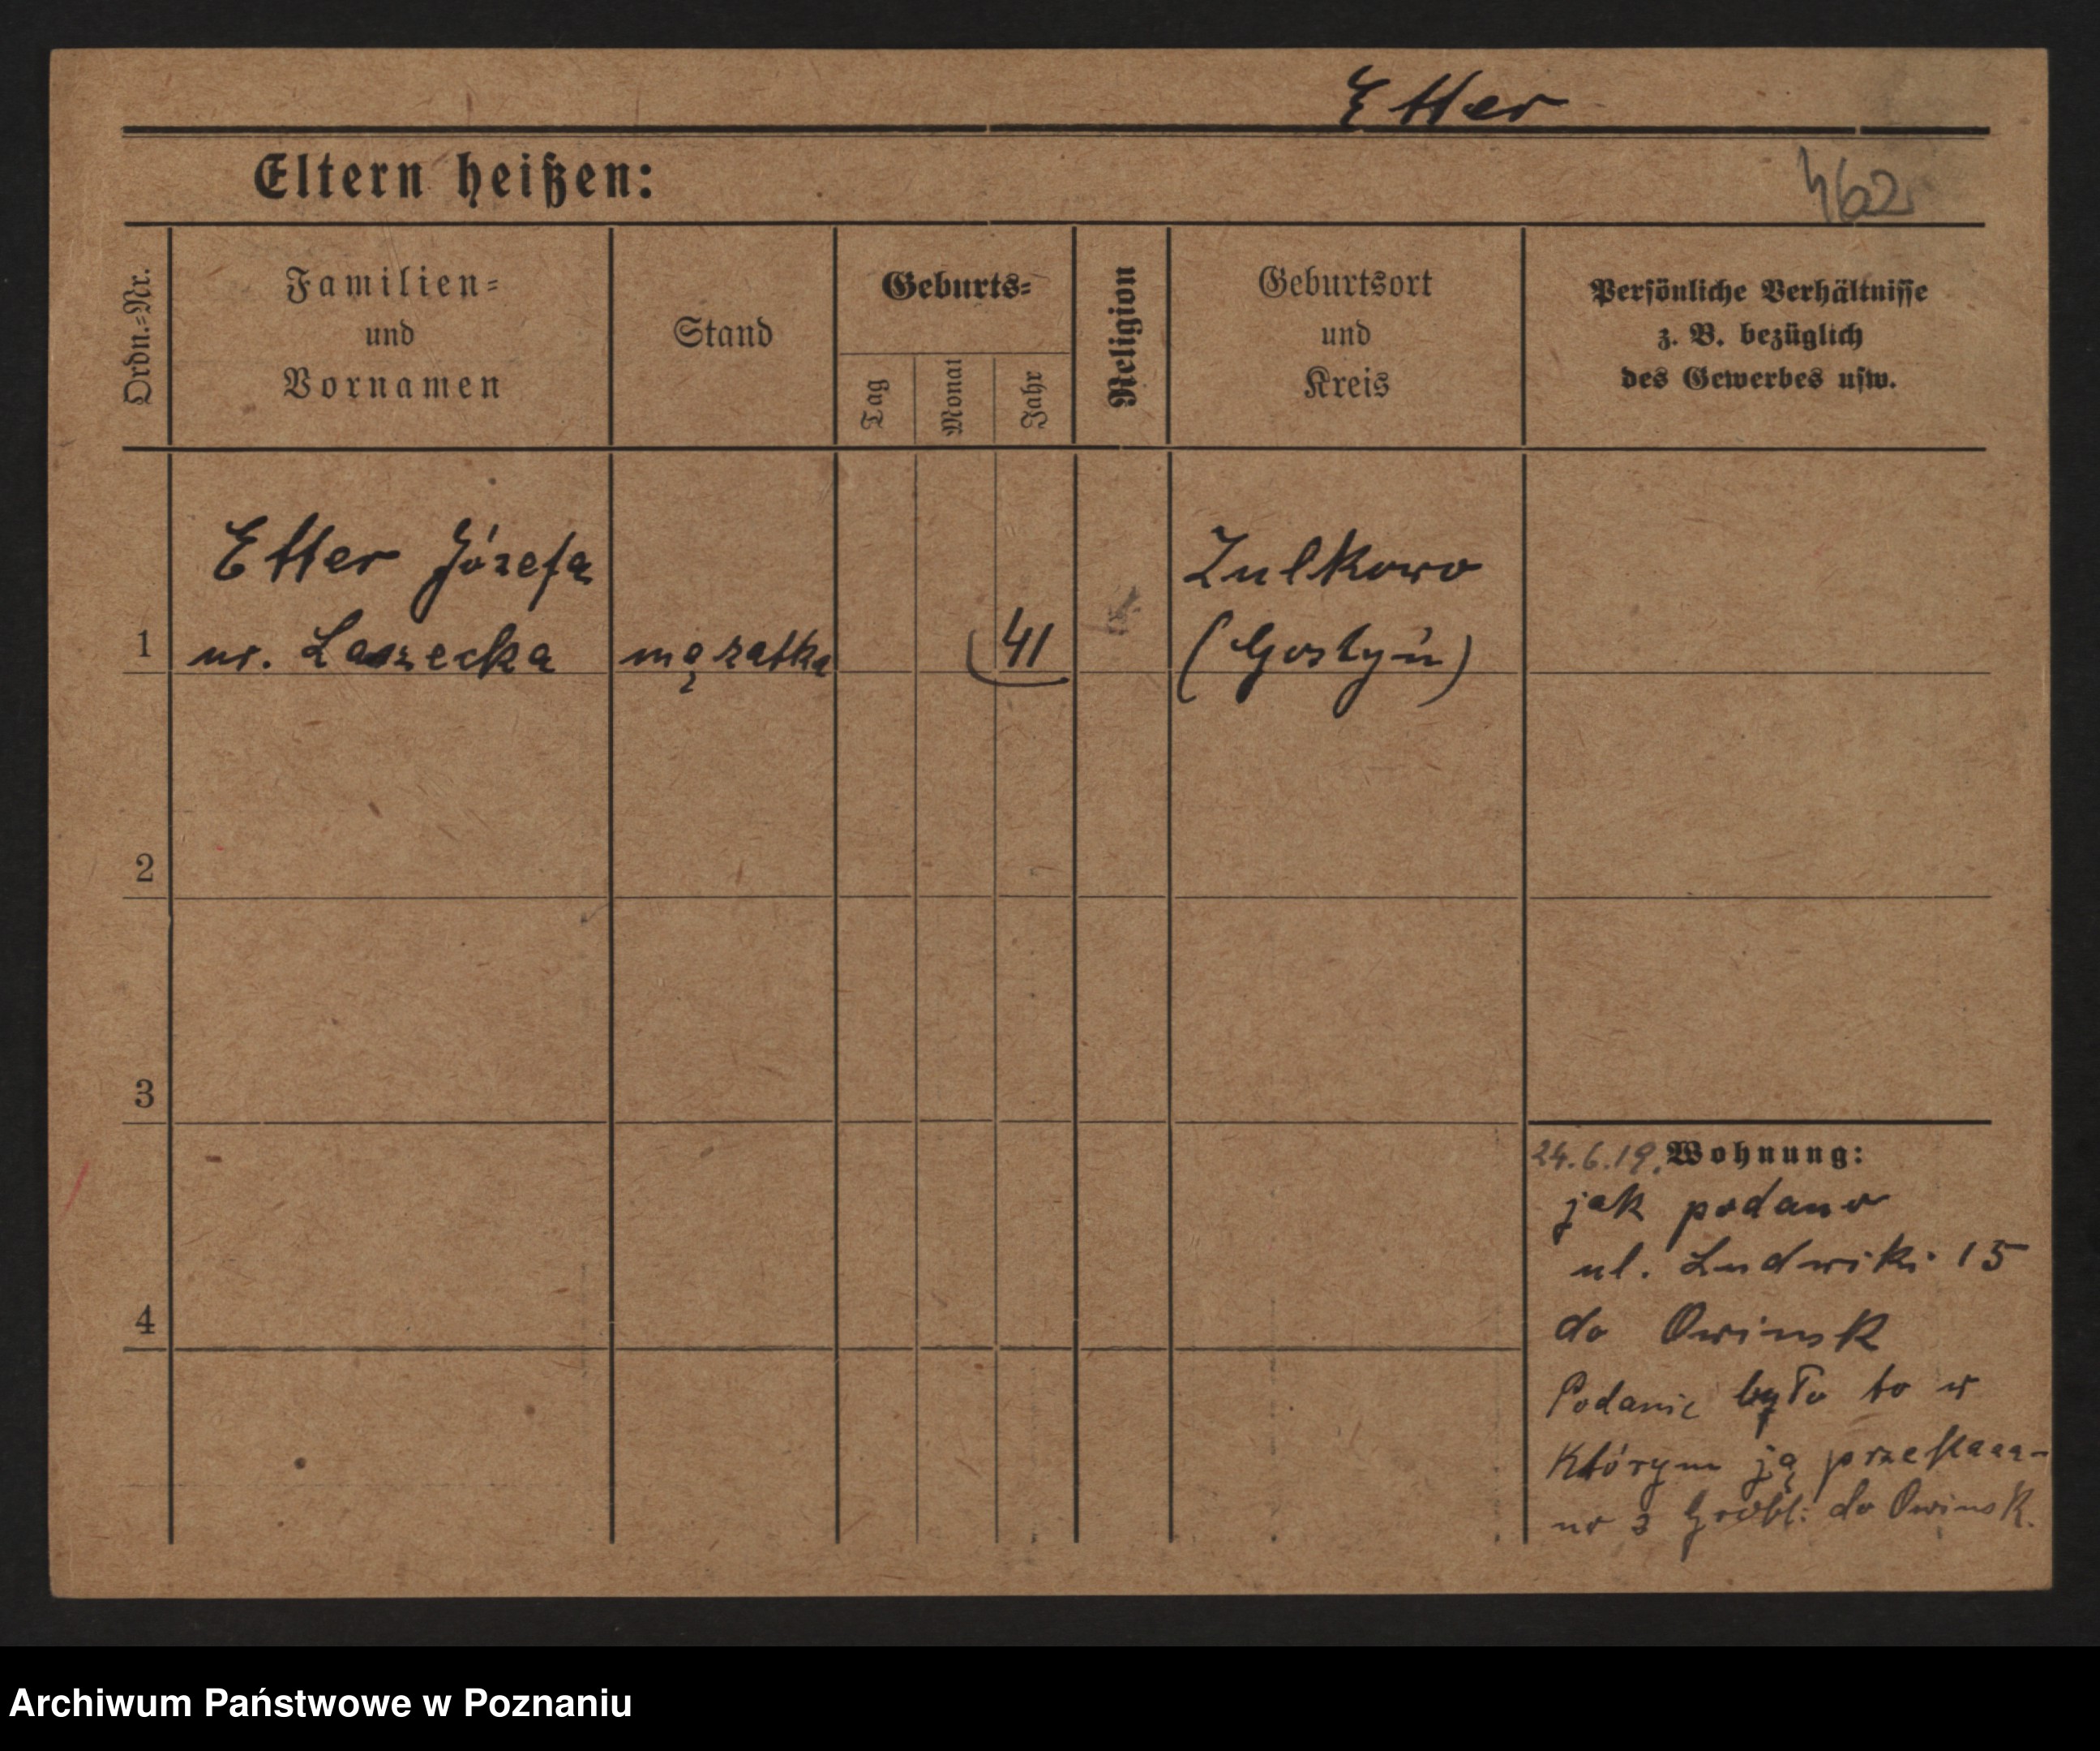 Etter
Eltern heißen:
462
Ordn.=Nr.
Familien=
und
Vornamen
Stand
Geburts=
Tag
Monat
Jahr
Religion
Geburtsort
und
Kreis
Persönliche Verhältnisse
z. B. bezüglich
des Gewerbes usw.
Etter Józefa
ur. Laszecka
mężatka
41
Zulkowo
(Gostyń)
1
2
3
4
24.6.19. Wohnung:
jak podano
ul. Ludwiki 15
do Owinsk
Podanie było to w
którym ją przeka
no z Grobli do Owinsk.
Archiwum Państwowe w Poznaniu